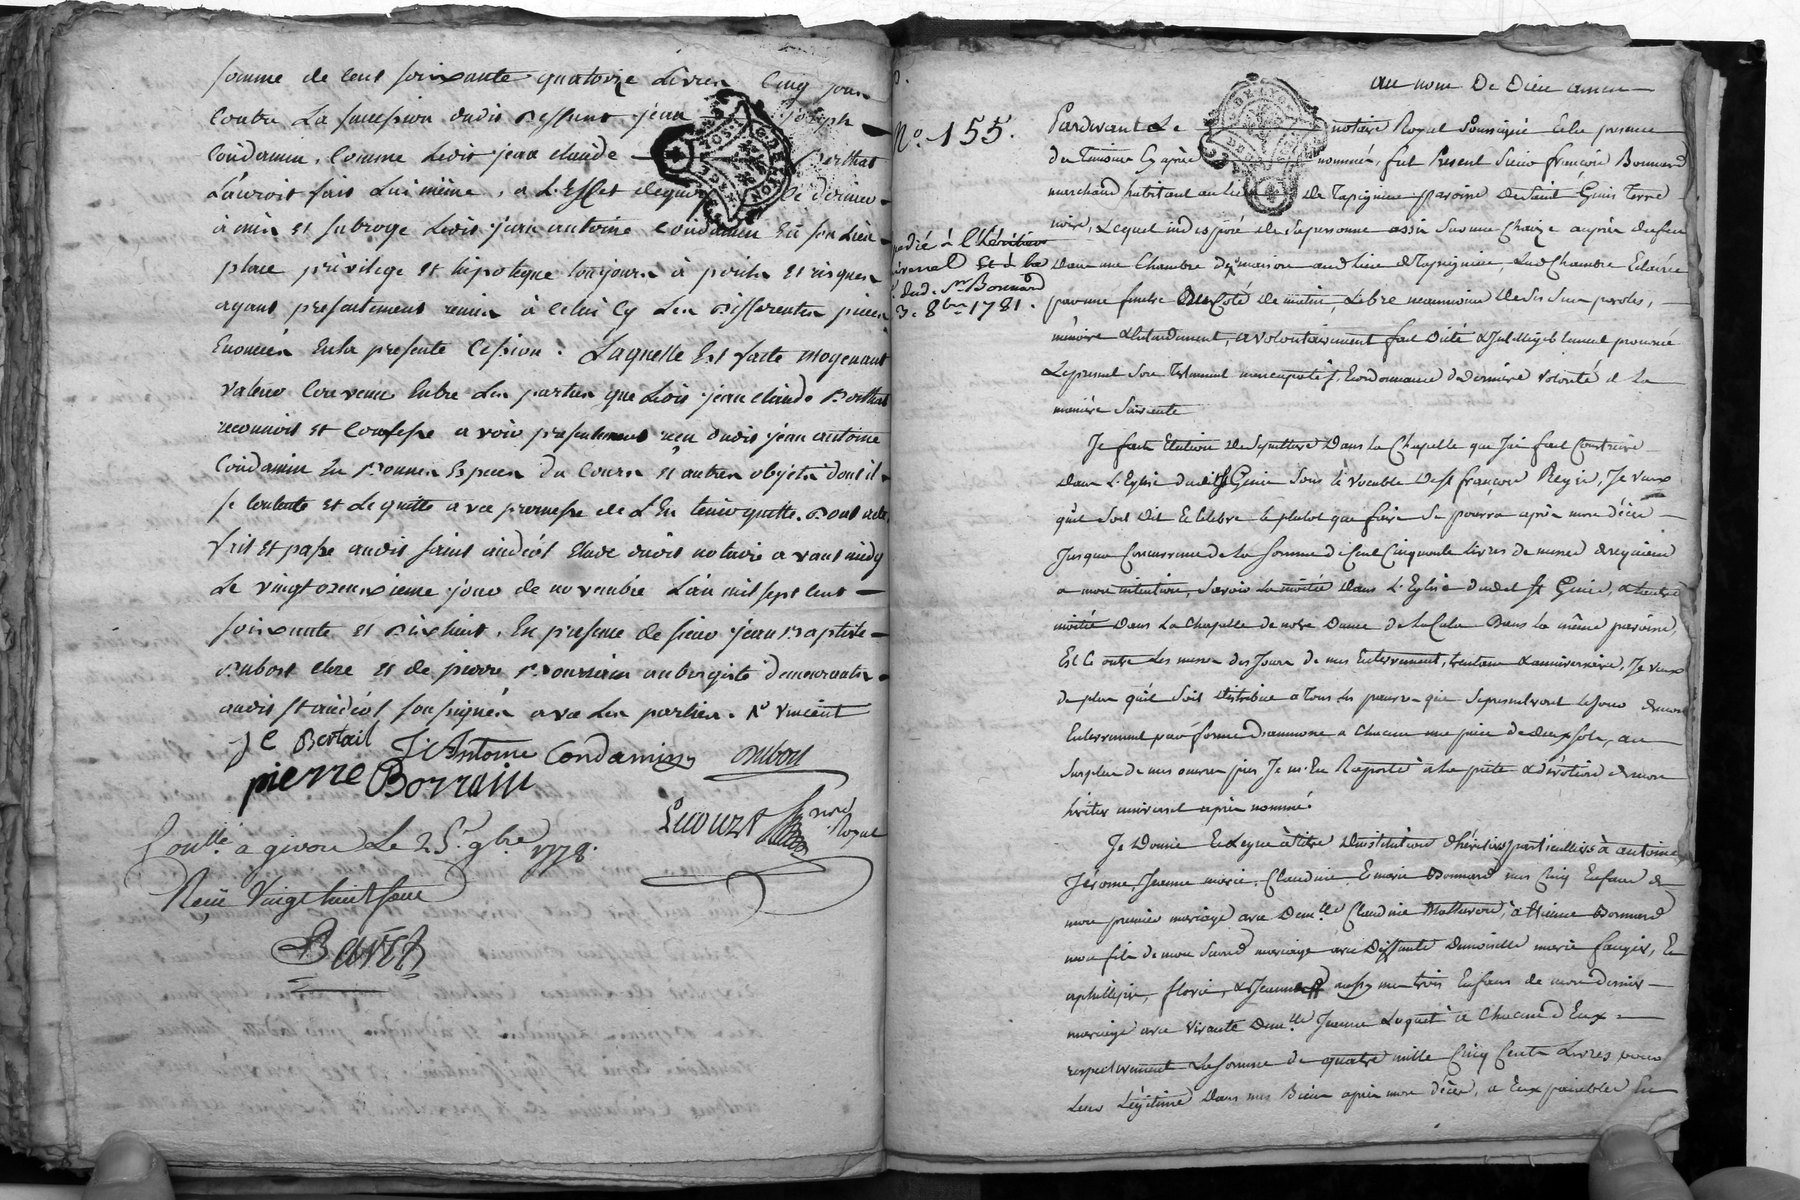 somme de cent soixante quatorze Livres Cinq sous
Contre La succession dudit deffunt jean joseph
Condamin, Comme Ledit jean claude Berthat
L'auroit fait Lui même, a L'Effet dequoy Ce dernier
à mis et subrogé Ledit jean antoine Condamin En son Lieu
place privilege et hipoteque toujours à perils et risques
ayant presentement remis à Celui Cy Les differentes pieces
Enoncées Enla presente Cession. Laquelle Est faite moyenant
valeur Convenue Entre Les parties que Ledit jean claude Berthat
reconnoit et Confesse avoir presentement reçu dudit jean antoine
Condamin En Bonnes Especes du Cours et autres objets dont il
se Contente et Le quitte avec promesse de L'En tenir quitte. Dont acte
fait et passé audit saint andéol Etude dudit notaire avant midy
Le vingt deuxieme jour de novembre L'an mil sept cent
soixante et Dix huit. En presence de sieur jean Baptiste
Dubost clerc et de pierre Bourrain aubergiste demeurants
audit st andéol soussignés avec Les parties. N° vincent
J C Bertail J. Antoine Condamin Dubost
pierre Borrain
Lecourt nore Royal
Conllé a givors Le 25. 9bre 1778.
Reçu Vingt huit sous
Bavet
au nom De Dieu amen
N°. 155.
Pardevant Le notaire Royal Soussigné Et la presence
des Temoins Cy après nommés, fut Present Sieur françois Bonnard
marchand habitant au Lieu De Tapigneux parroisse de Saint Genis Terre
noire, Lequel indisposé de Sa personne assis Sur une Chaize auprès du feu
Dans une Chambre de sa maison aud Lieu de Tapigneux, Lad Chambre Eclairée
par une fenetre Du Coté de matin, Libre neanmoins de ses Sens paroles,
mémoire & Entendement, a volontairement fait Dicté & Intelligiblement prononcé
Le present Son Testament nuncupatif, & ordonnance de Derniere volonté de La
manière Suivante
Expedié à l'héritier
universel Et à la
ve. dud. Sr. Bonnard
3. 8bre 1781.
Je fais Election de Sepulture Dans La Chapelle que J'ai fait Construire
Dans L'Eglise dudit St Genis Sous le Vocable de St françois Regis, Je veux
qu'il Soit Dit & Celebré le plutot que faire Se pourra après mon décès
Jusqua Concurrence de La Somme de Cent Cinquante Livres de messes de requiem
a mon intention, Savoir La moitié Dans L'Eglise dudit St Genis, & L'autre
moitié Dans La Chapelle de notre Dame de La Cula Dans la même paroisse,
Est Ce outre Les messes des Jours de mes Enterrement, trentaine & anniversaire, Je veux
de plus qu'il Soit distribué a Tous Les pauvres qui Se presenteront Le Jour de mon
Enterrement par forme d'aumone a Chacun une piece de deux Sols, au
Surplus de mes œuvres pies Je m'En Raporte a La pieté & dévotion de mon
hériter universel après nommé.
Je Donne & Legue à titre d'institution d'héritiers particuliers à antoine
Jérome, Jeanne marie, Claudine & marie Bonnard mes Cinq Enfans de
mon premier mariage avec Demlle Claudine Matheron, à Etienne Bonnard
mon fils de mon Second mariage avec Deffunte Demoiselle marie faugier, &
a phillipe, florie, & Jeanne aussy mes trois Enfans de mon dernier
mariage avec Vivante Demlle Jeanne Luquet a Chacun d'Eux
respectivement La Somme de quatre mille Cinq Cents Livres, pour
Leur Légitime Dans mes Biens après mon décès, a Eux païables En